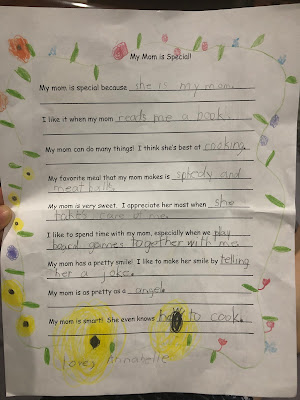 My Mom is Special!
My mom is special because she is my mom.
I like it when my mom reads me a book.
My mom can do many things! I think she's best at cooking.
My favorite meal that my mom makes is spledy and
meat balls.
My mom is very sweet. I appreciate her most when she
takes care of me.
I like to spend time with my mom, especially when we play
board games together with me.
My mom has a pretty smile! I like to make her smile by telling
her a joke.
My mom is as pretty as a angel.
My mom is smart! She even knows to cook.
Love, Annabelle